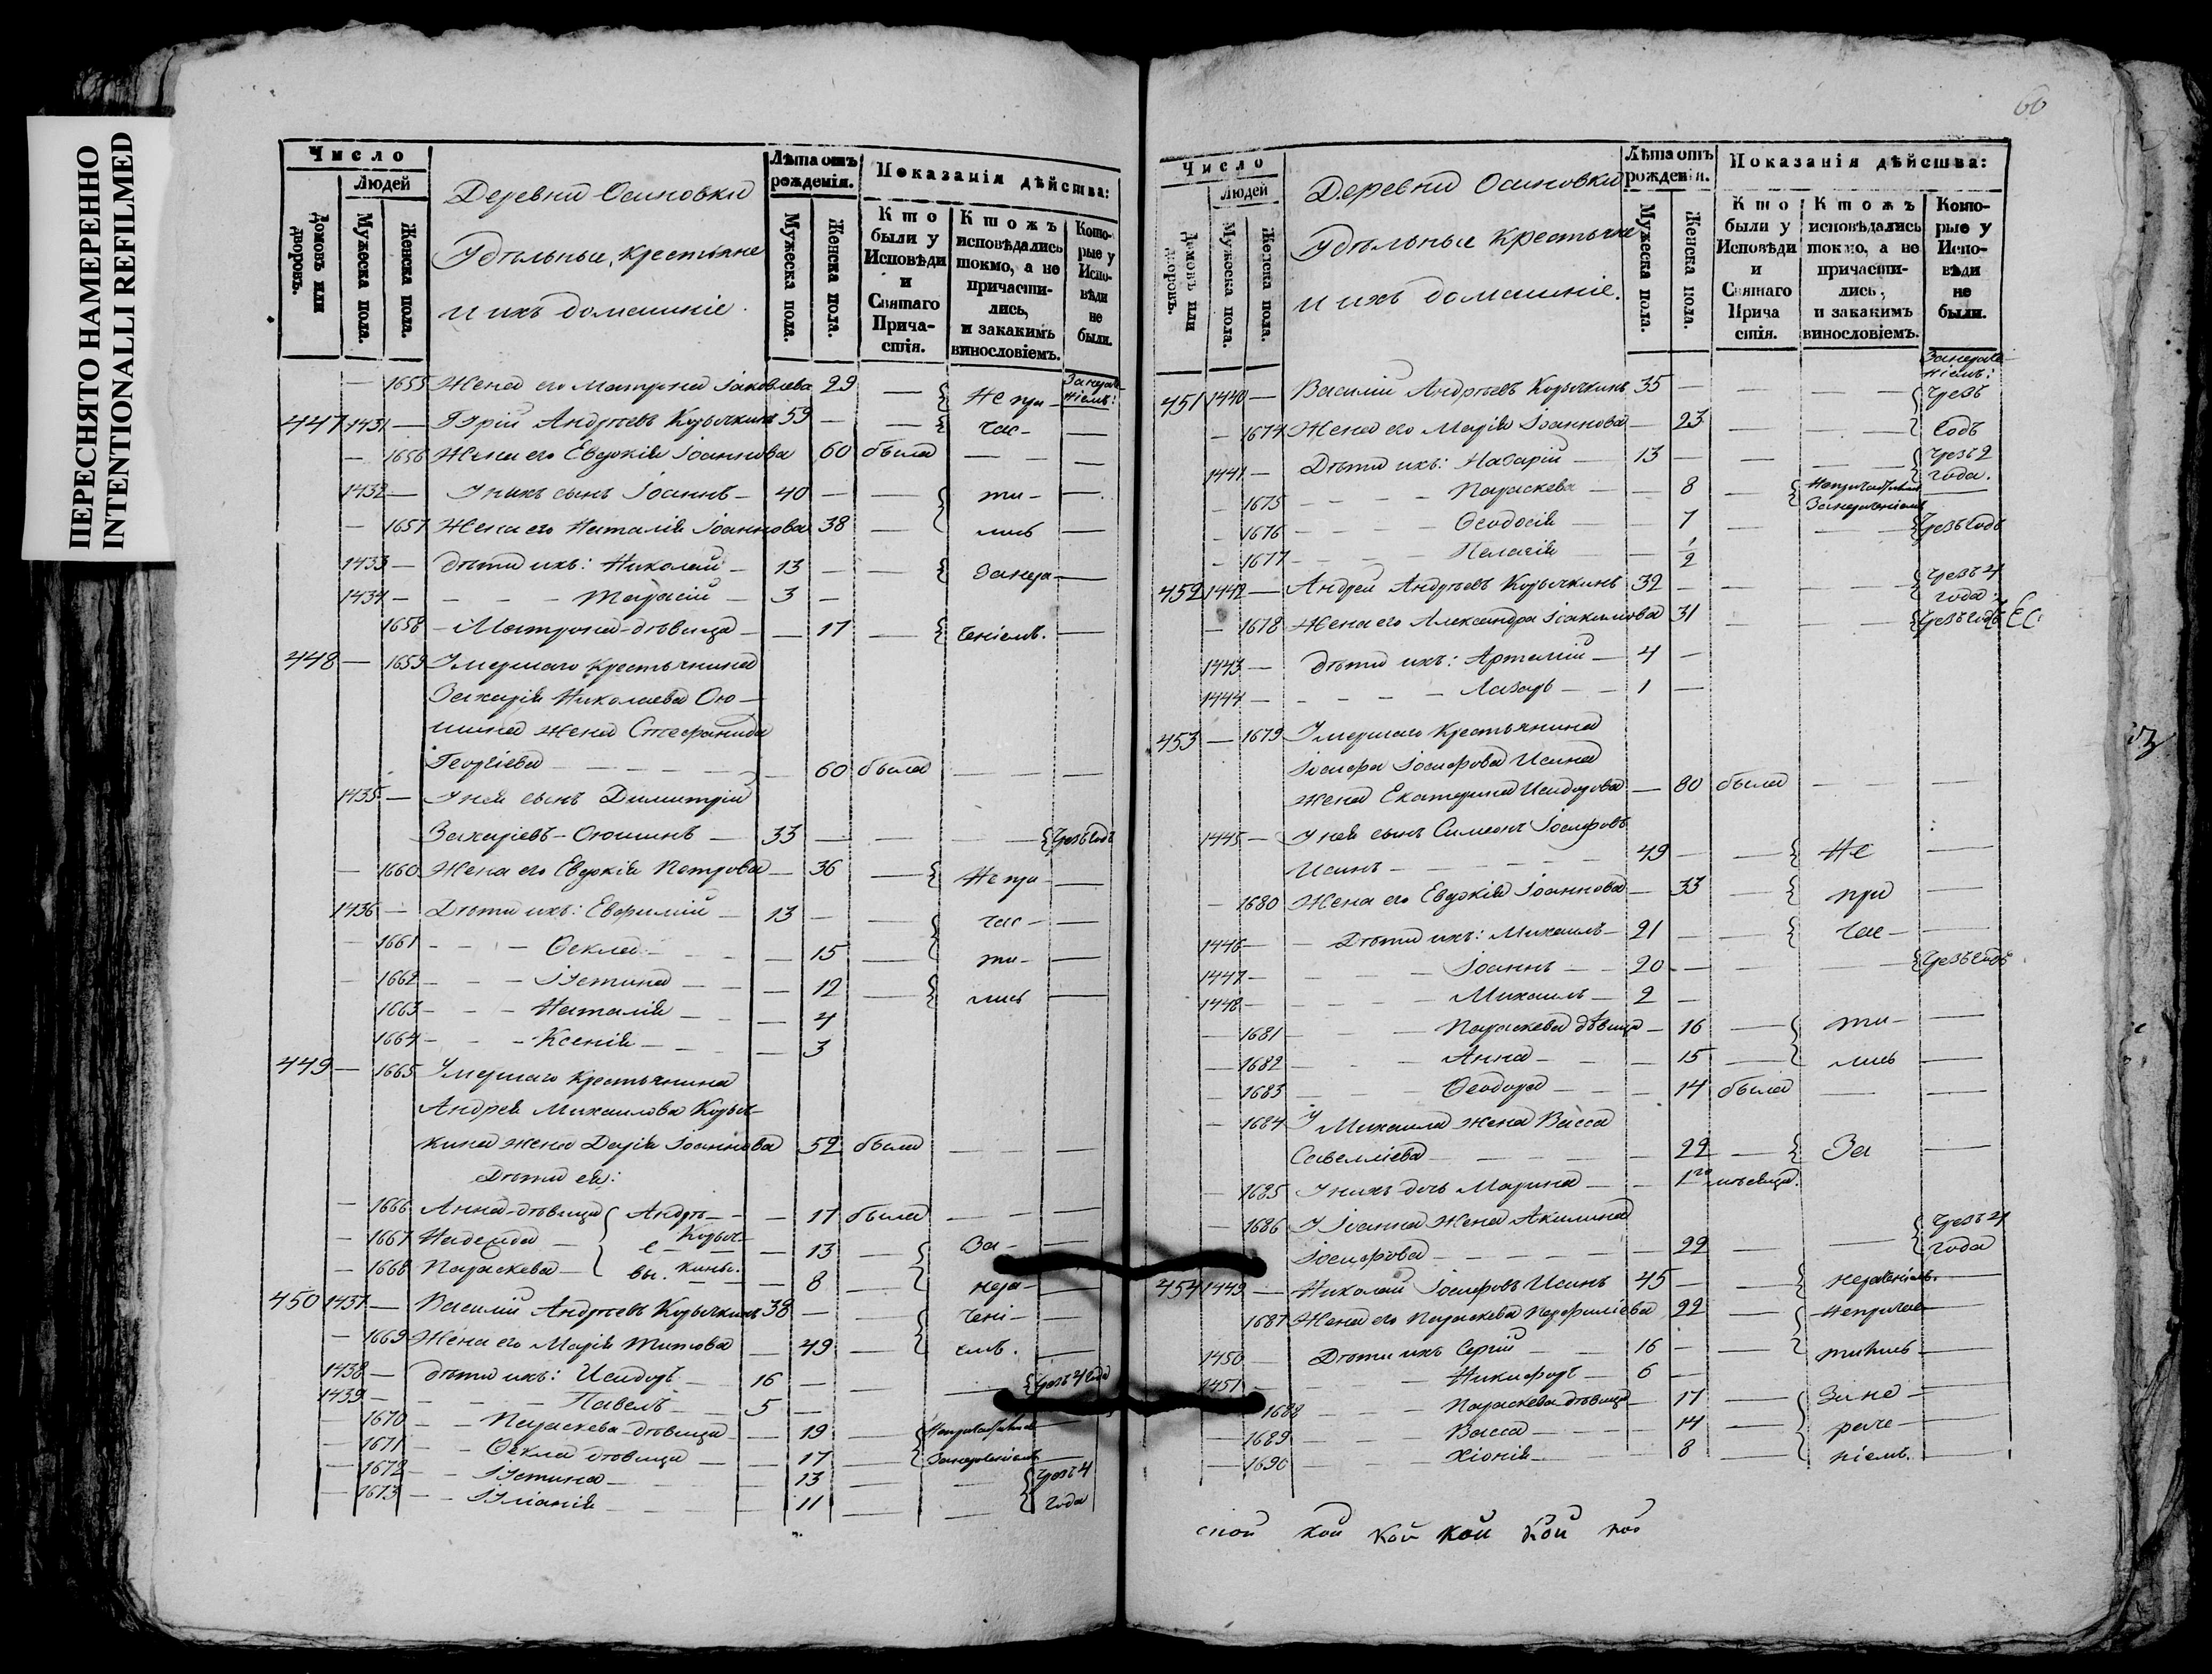 ПЕРЕСНЯТО НАМЕРЕННО
INTENTIONALLI REFILMED
Число
Людей
Домовъ или дворовъ.
Мужеска пола.
Женска пола.
Деревни Осиновки
Удѣльные крестьяне
и ихъ домашніе.
Лѣта отъ рожденія.
Мужеска пола.
Женска пола.
Показанія дѣйства:
Кто были у Исповѣди и Святаго Прича-стія.
Ктожъ исповѣдались токмо, а не причасти-лись, и закакимъ винословіемъ.
Кото-рые у Испо-вѣди не были.
— 1655 Жена его Матрона Іаковлева 29 — Не при-
447 1431 — Андреевъ 59 — — час- —
— 1656 Жена его Евдокія Іоаннова 60 была — —
1432 — У нихъ сынъ Іоаннъ — 40 — — ти- —
— 1657 Жена его Наталія Іоаннова 38 — лись —
1433 — Дѣти ихъ: Николай — 13 — — занера- —
1434 — — — — Тарасій — 3 —
1658 — Матрона дѣвица — — 17 — ченіемъ. —
448 — 1659 Умершаго крестьянина
Захарія Николаева Ою-
шина жена Стефанида
Георгіева — — — 60 была — —
1435 — У нея сынъ Димитрій
Захаріевъ Оюшинъ — 33 — — — Чрезъ годъ
— 1660 Жена его Евдокія Петрова — 36 — Не при- —
1436 — Дѣти ихъ: Евфимій — 13 — — час- —
— 1661 — — — Ѳекла — — 15 — ти- —
— 1662 — — — Іустина — — 12 — лись —
1663 — — — Наталія — — 4
1664 — — — Ксенія — — 3
449 — 1665 Умершаго крестьянина
Андрея Михаилова
кина жена Дарія Іоаннова 52 была — —
Дѣти ея:
— 1666 Анна дѣвица Андрѣ- — 17 была — —
— 1667 Надежда — е- — 13 — За- —
— 1668 Параскева — вы. кины. — 8 — нера- —
450 1437 — Василій Андреевъ 38 — — чені- —
— 1669 Жена его Марія Титова — 49 — емъ. —
1438 — Дѣти ихъ: Исидоръ — 16 — — — Чрезъ 4 года
1439 — — — — Павелъ — 5 —
1670 — — Параскева дѣвица — 19 —
1671 — — Ѳекла дѣвица — — 17 — Занераченіемъ —
1672 — — Іустина — — 13 — — Чрезъ 4
1673 — — Іуліанія — — 11 — — года
60
Число
Людей
Домовъ или дворовъ.
Мужеска пола.
Женска пола.
Деревни Осиновки
Удѣльные крестьяне
и ихъ домашніе.
Лѣта отъ рожденія.
Мужеска пола.
Женска пола.
Показанія дѣйства:
Кто были у Исповѣди и Святаго Прича стія.
Ктожъ исповѣдались токмо, а не причасти-лись, и закакимъ винословіемъ.
Кото-рые у Испо-вѣди не были.
Занераче-ніемъ:
451 1440 — Василій Андреевъ 35 — — — Чрезъ
— 1674 Жена его Марія Іоаннова — 23 — — годъ
1441 — Дѣти ихъ: Назарій — 13 — — — Чрезъ 2 года.
— 1675 — — — Параскева — — 8 — Занераченіемъ —
— 1676 — — — Ѳеодосія — — 7 — — Чрезъ годъ
— 1677 — — — Пелагія — — 1/2
452 1442 — Андрей Андреевъ 32 — — — Чрезъ 4 года.
— 1678 Жена его Александра Іоакимова 31 — — Чрезъ годъ
1443 — Дѣти ихъ: Артемій — 4 —
1444 — — — — Лазарь — 1 —
453 — 1679 Умершаго крестьянина
Іосифа Іосифова Исина
жена Екатерина Исидорова — 80 была — —
1445 — У нея сынъ Симеонъ Іосифовъ
Исинъ — — — 49 — — Не —
— 1680 Жена его Евдокія Іоаннова — 33 — при —
1446 — Дѣти ихъ: Михаилъ — 21 — — час- —
1447 — — — Іоаннъ — 20 — — — Чрезъ годъ
1448 — — — Михаилъ — 2 —
— 1681 — — — Параскева дѣвица — 16 — ти- —
— 1682 — — — Анна — — 15 — лись —
— 1683 — — — Ѳеодора — — 14 была — —
— 1684 У Михаила жена Васса
Савелліева — — — 22 — За —
— 1685 У нихъ дочь Марина — — 1го мѣсяца.
— 1686 У Іоанна жена Акилина
Іосифова — — — 22 — — Чрезъ 4 года
454 1449 — Николай Іосифовъ Исинъ 45 — — нераченіемъ. —
1687 Жена его Параскева Перфиліева 22 — Непричас- —
1450 — Дѣти ихъ Сергій — 16 — — тились —
1451 — — — Никифоръ — 6 —
1688 — — — Параскева дѣвица — 17 — Зане- —
— 1689 — — — Васса — — 14 — раче- —
— 1690 — — — Хіонія — — 8 — ніемъ. —
кой кой кой кой